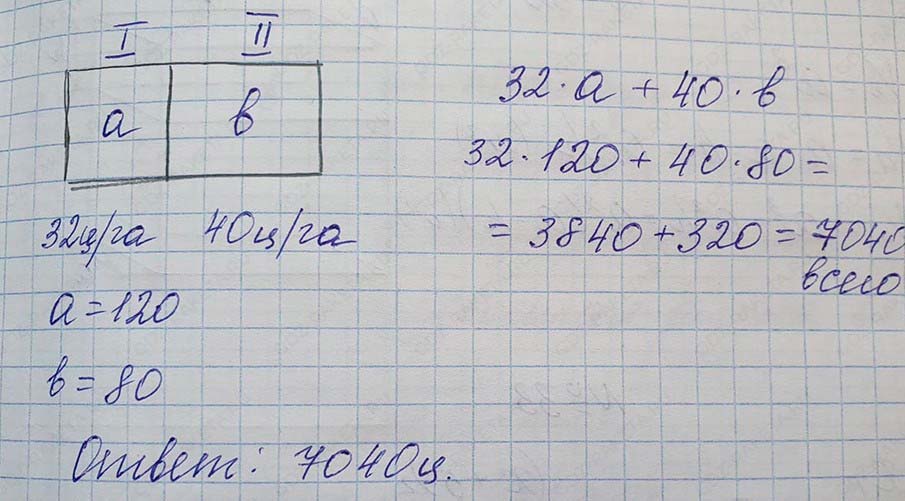 I II
a b
32ц/га 40ц/га
a = 120
b = 80
32 · a + 40 · b
32 · 120 + 40 · 80 =
= 3840 + 320 = 7040
всего
Ответ: 7040ц.